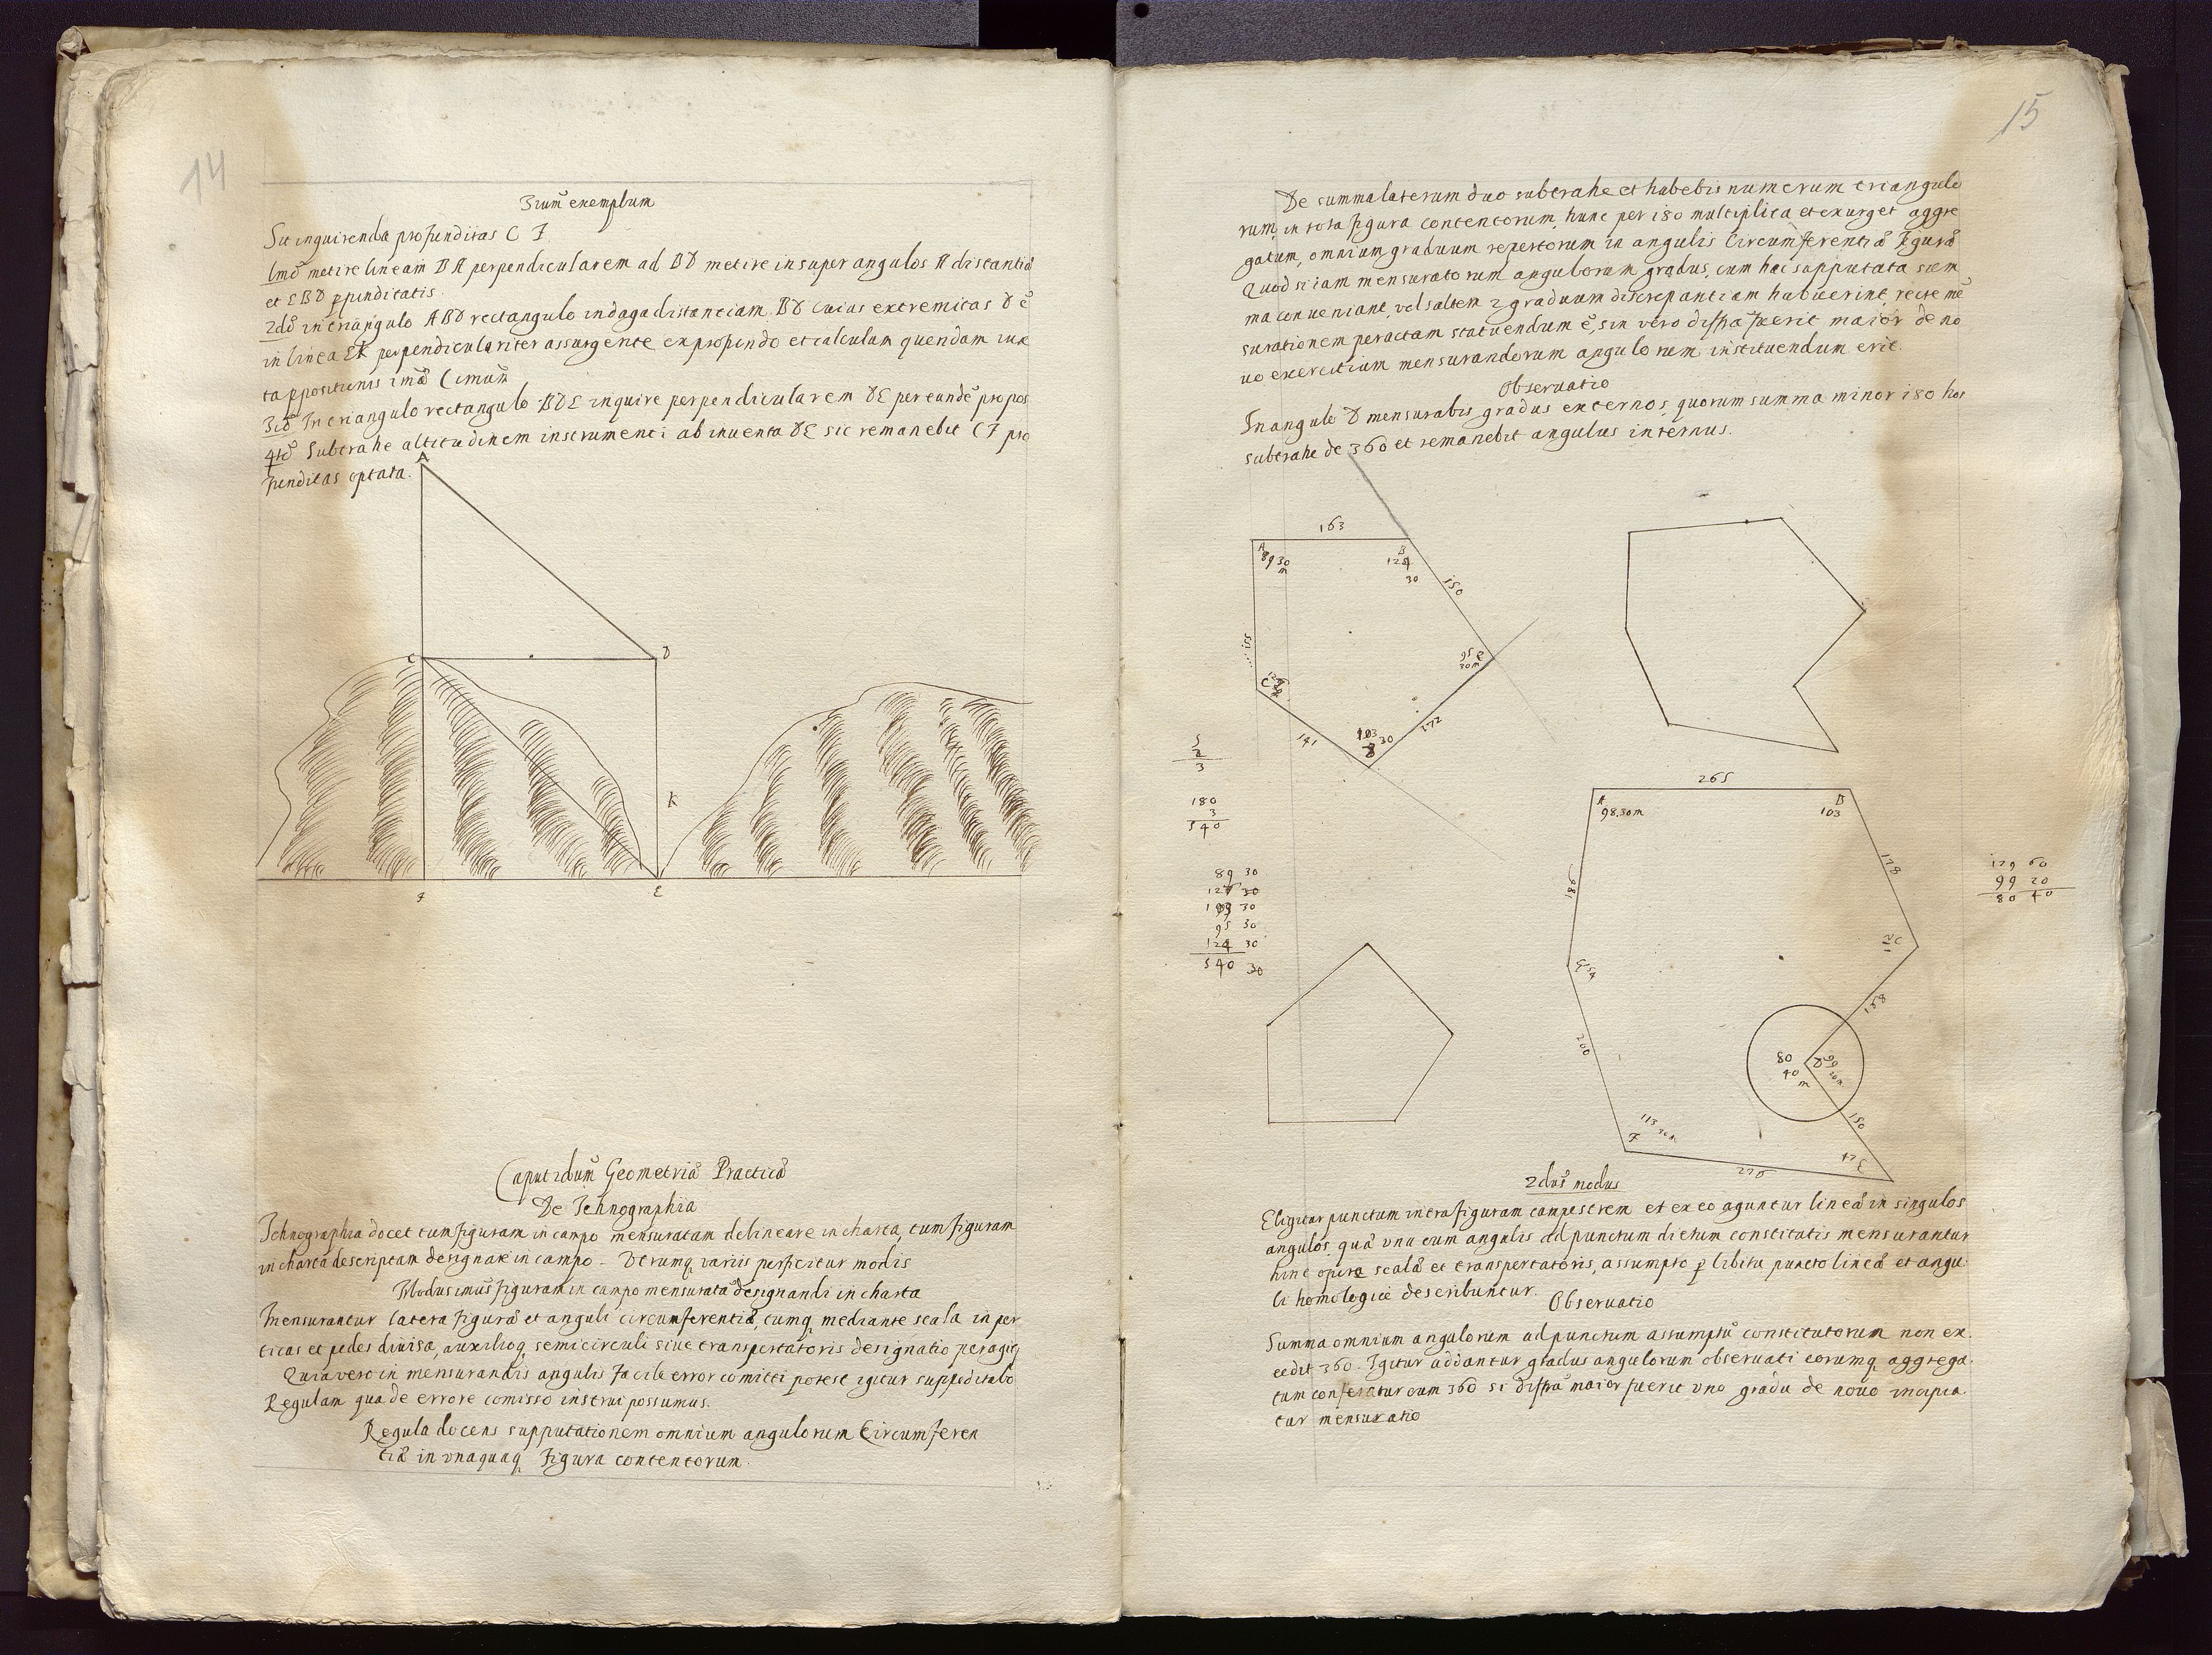 14
3ium exemplum
Sit inquirenda profunditas C F
Imo metire lineam BA perpendicularem ad BD metire insuper angulos A distantiæ
et EBD pfunditatis
2do in triangulo ABD rectangulo indaga distantiam BD cuius extremitas D ē
in linea EK perpendiculariter assurgente ex profundo et calculum quendam iux
ta ppositionis imæ Cimum
3io In triangulo rectangulo BDE inquire perpendicularem DE per eundē propos
4to Subtrahe altitudinem instrumenti ab inventa DE sic remanebit CF pro
funditas optata.
A
C
D
K
F
E
Caput 2dum Geometriæ Practicæ
De Ichnographia
Ichnographia docet tum figuram in campo mensuratam delineare in charta, tum figuram
in charta descriptam designare in campo. Utrumq variis perficitur modis
Modus imus figuram in campo mensuratā designandi in charta
Mensurantur latera figuræ et anguli circumferentiæ, tumq mediante scala in per
ticas et pedes divisa, auxilioq semicirculi sive transportatoris designatio peragit
Quia vero in mensurandis angulis facile error comitti potest igitur suppeditabo
Regulam qua de errore comisso instrui possumus.
Regula docens supputationem omnium angulorum Circumferen
tiæ in unaquaq figura contentorum.
15
De summa laterum duo subtrahe et habebis numerum triangulo
rum, in tota figura contentorum, hunc per 180 multiplica et exurget aggre
gatum, omnium graduum repertorum in angulis Circumferentiæ Figuræ
Quod si iam mensuratorum angulorum gradus, cum hac supputata sum
ma conveniant, vel saltem 2 graduum discrepantiam habuerint, recte mē
surationem peractam statuendum ē, sin vero differa fuerit maior de no
vo exercitium mensurandorum angulorum instituendum erit.
Observatio
In angulo D mensurabis gradus externos, quorum summa minor 180 hos
subtrahe de 360 et remanebit angulus internus.
163
A
89 30
m
B
124
30
150
155
95 E
30 m
C
103
30
141
172
5
2
3
180
3
540
89 30
103 30
95 30
124 30
540 30
265
A
98.30m
B
103
178
186
C
G 154
158
200
80
40
m
D 99
20m
150
F
113
E
47
270
179 60
99 20
80 40
2dus modus
Eligitur punctum intra figuram campestrem et ex eo aguntur lineæ in singulos
angulos, quæ una cum angulis ad punctum dictum constitutis mensurantur
hinc opera scalæ et transportatoris, assumpto p libitu puncto lineæ et angu
li homologice describuntur.
Observatio
Summa omnium angulorum ad punctum assumptū constitutorum non ex
cedit 360. Igitur addantur gradus angulorum observati eorumq aggrega
tum conferatur cum 360 si differa maior fuerit uno gradu de novo incipia
tur mensuratio